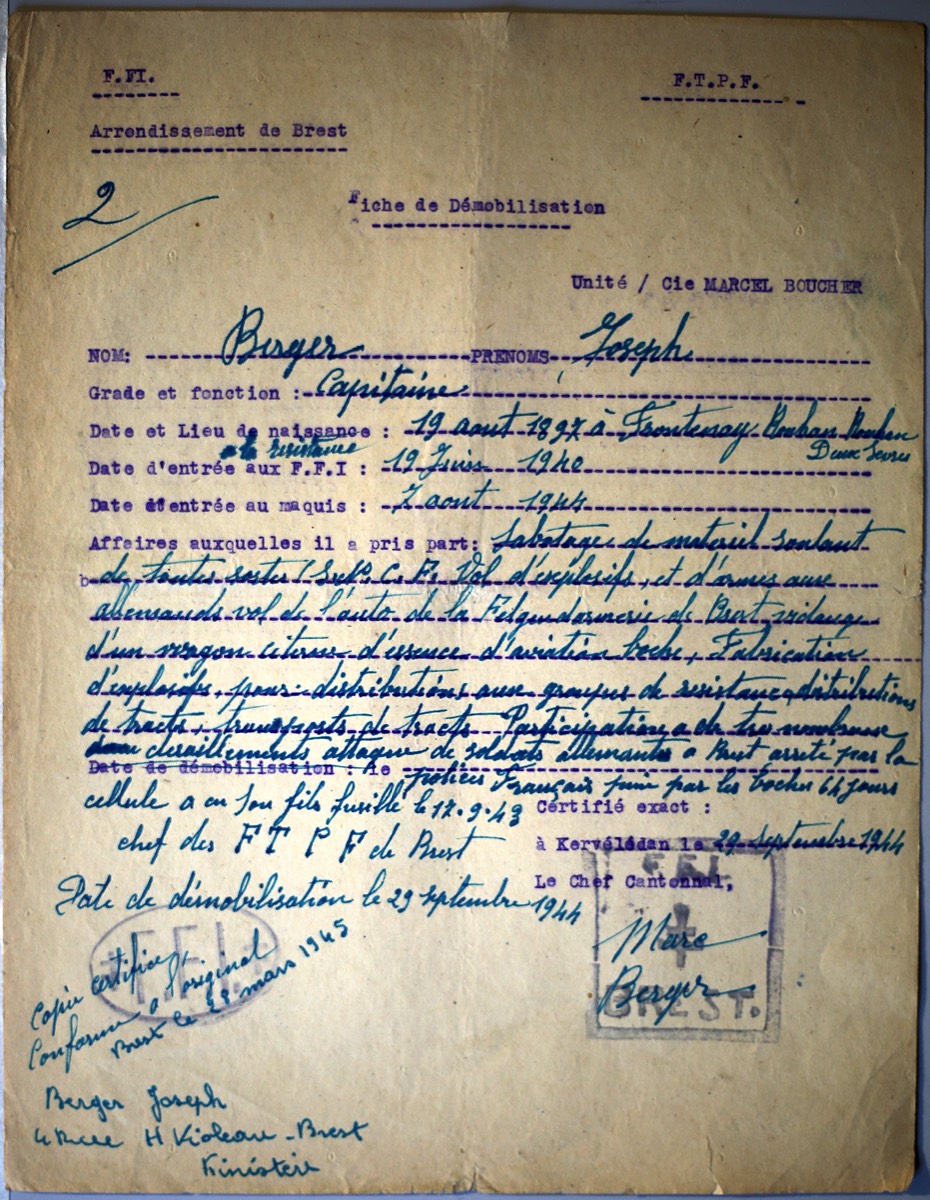 F.FI.
F.T.P.F.
Arrondissement de Brest
2
Fiche de Démobilisation
Unité / Cie MARCEL BOUCHER
NOM: Berger PRENOMS Joseph
Grade et fonction : Capitaine
Date et Lieu de naissance : 19 aout 1897 à Frontenay Rouhan Rouhan
Deux Sevres
a la resistance
Date d'entrée aux F.F.I : 19 Juin 1940
Date d'entrée au maquis : 7 aout 1944
Affaires auxquelles il a pris part: Sabotage de materiel roulant
de toutes sortes S.N.C.F. Vol d'explosifs, et d'armes aux
allemands vol de l'auto de la Felgendarmerie de Brest vidange
d'un wagon citerne d'essence d'aviation boche, Fabrication
d'explosifs, pour distributions aux groupes de resistance, distributions
de tracts, transports de tracts Participation a de tres nombreux
deraillements attaque de soldats allemants a Brest arreté par la
Date de démobilisation : le polices Français puni par les boches 64 jours
cellule a eu son fils fusillé le 17.9.43
Certifié exact :
chef des F T P F de Brest
à Kervélédan le 29 septembre 1944
Le Chef Cantonnal,
Date de démobilisation le 29 septembre 1944
F.F.I.
BREST.
Marc
Berger
F.F.I.
Copie certifiée
Conforme a l'original
Brest le 28 mars 1945
Berger Joseph
4 Rue H Violeau - Brest
Finistère